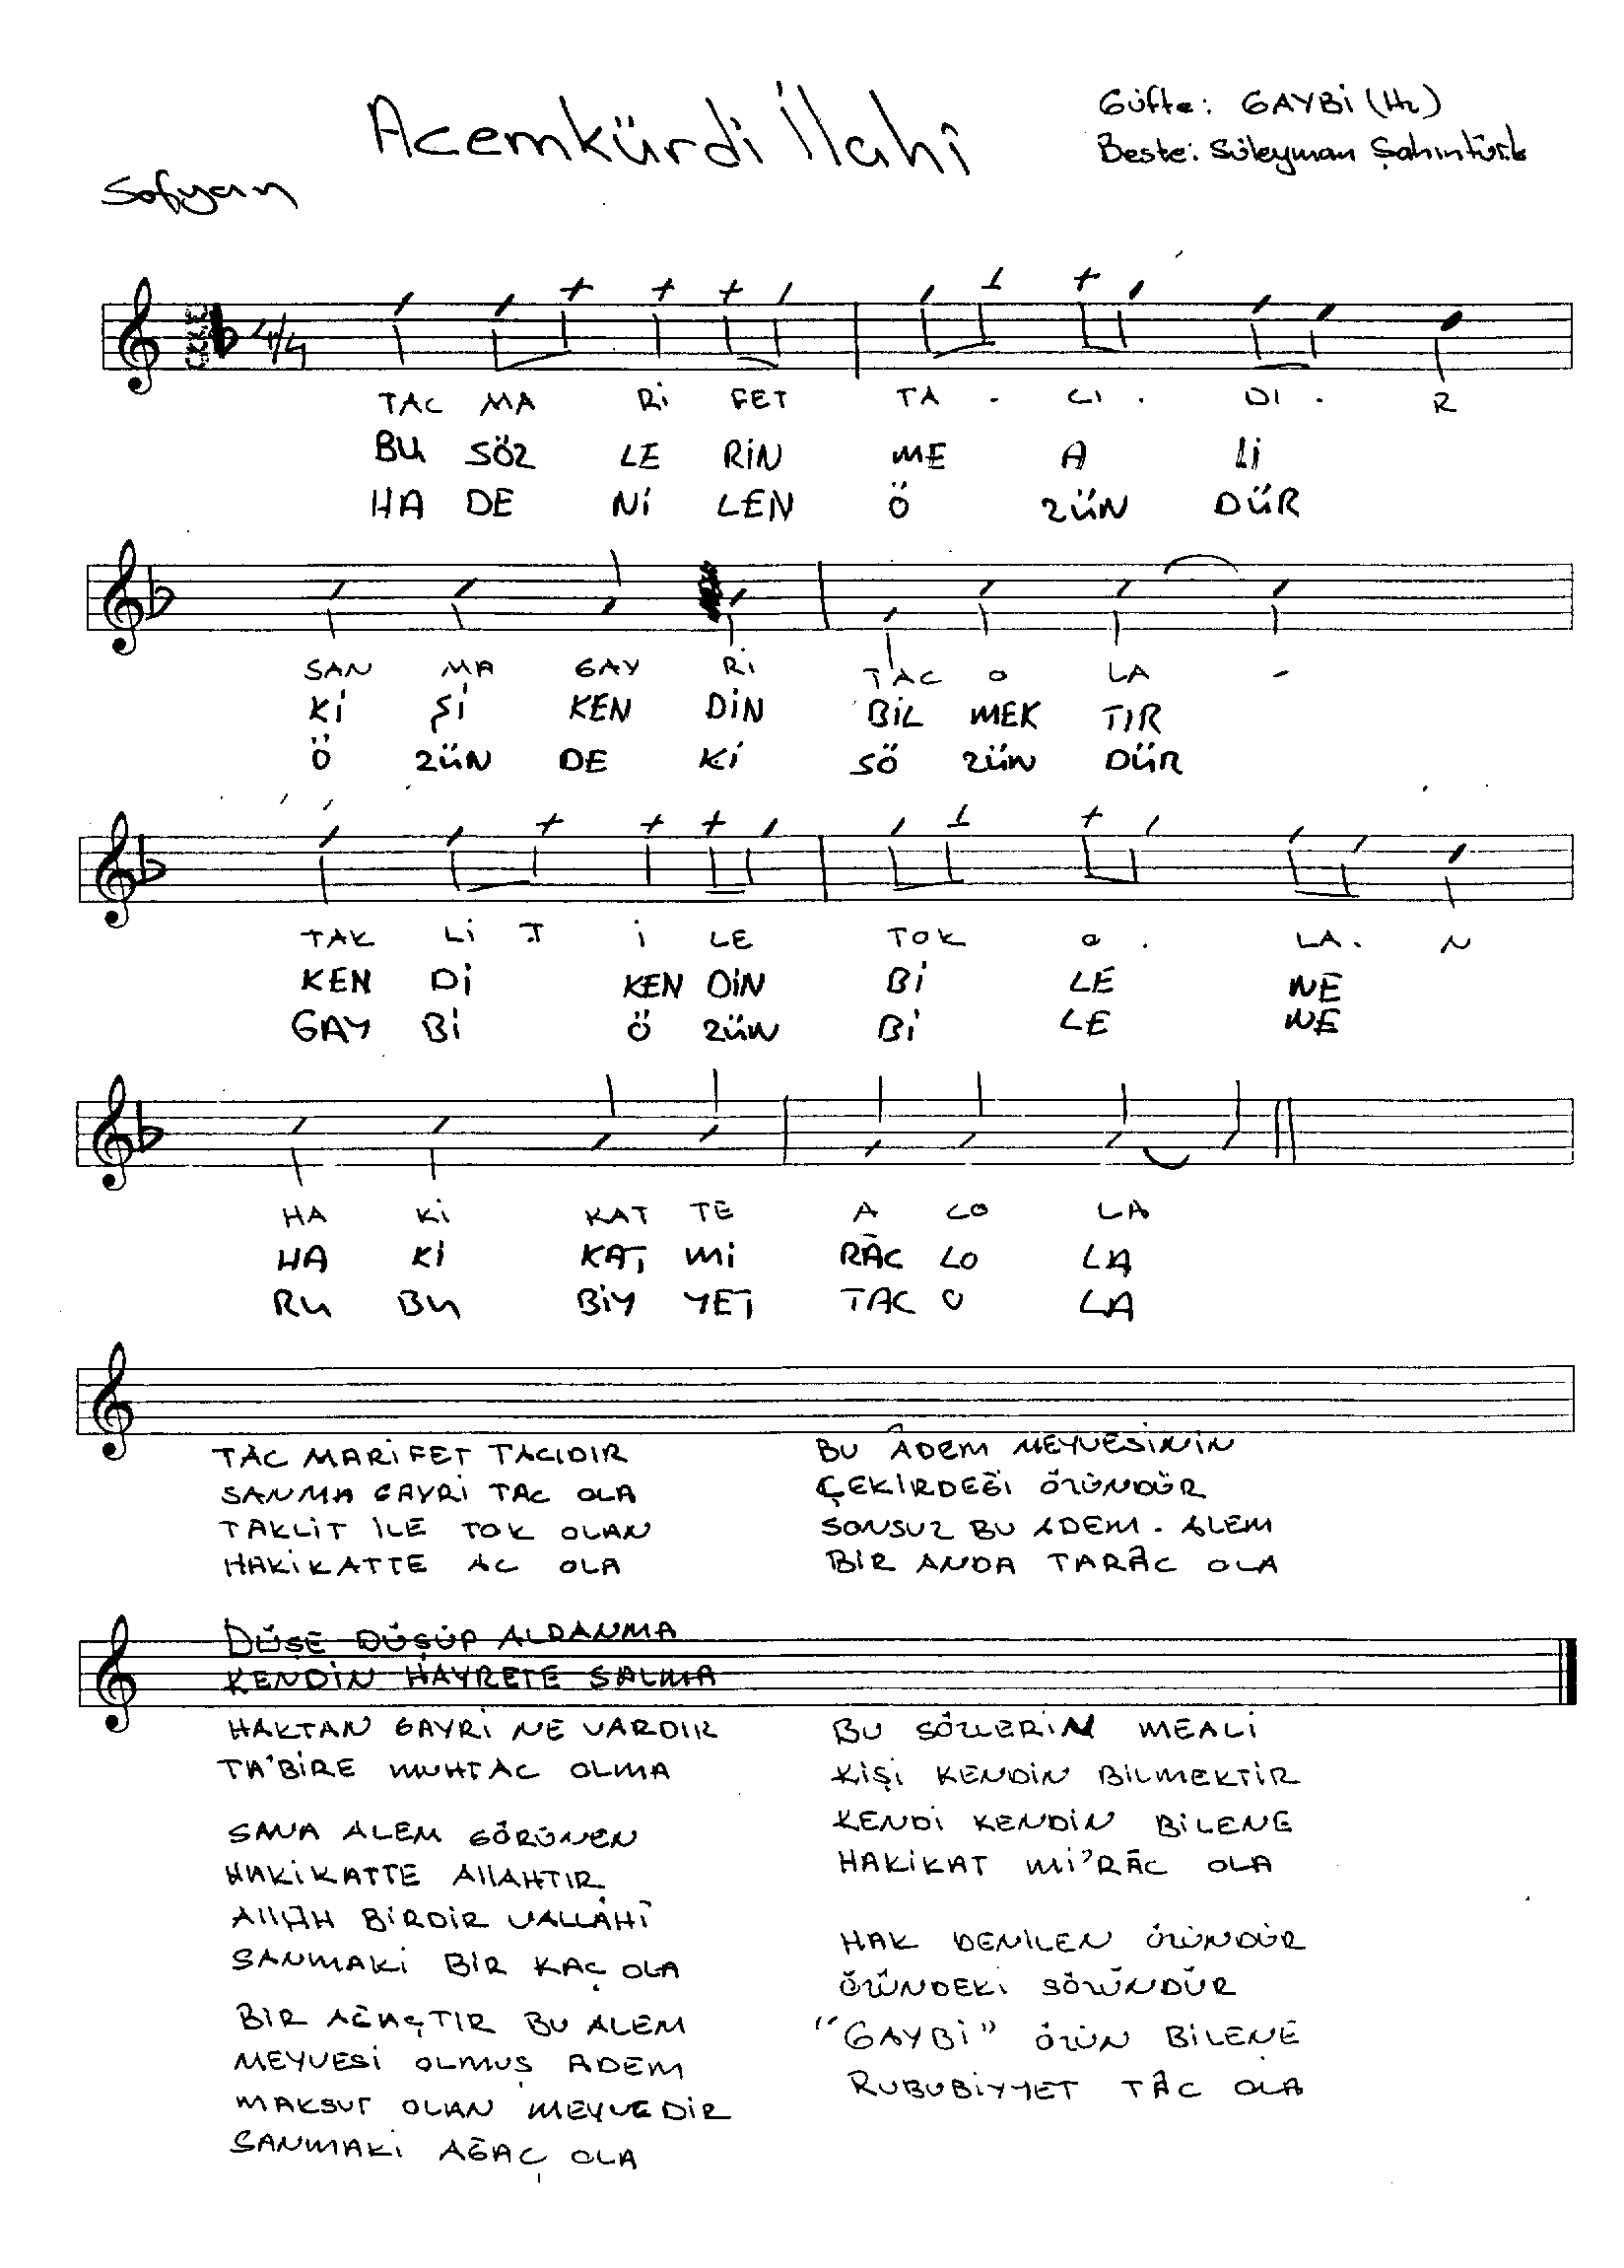 Acemkürdi İlahî
Güfte: GAYBİ (Hz)
Beste: Süleyman Şahintürk
Sofyan
4/4
TAC MA Rİ FET TA . CI . DI . R
BU SÖZ LE RİN ME A Lİ
HA DE Nİ LEN Ö ZÜN DÜR
SAN MA GAY Rİ TAC O LA -
Kİ Şİ KEN DİN BİL MEK TIR
Ö ZÜN DE Kİ SÖ ZÜN DÜR
TAK Lİ T İ LE TOK O . LA . N
KEN Dİ KEN DİN Bİ LE NE
GAY Bİ Ö ZÜN Bİ LE NE
HA Kİ KAT TE A CO LA
HA Kİ KAT Mİ RÂC LO LA
RU BU BİY YET TAC O LA
TAC MARİFET TACIDIR
SANMA GAYRİ TAC OLA
TAKLİT İLE TOK OLAN
HAKİKATTE AC OLA
BU ÂDEM MEYVESİNİN
ÇEKİRDEĞİ ÖZÜNDÜR
SONSUZ BU ADEM . ALEM
BİR ANDA TARÂC OLA
DÜŞE DÜŞÜP ALDANMA
KENDİN HAYRETE SALMA
HAKTAN GAYRİ NE VARDIR
TA'BİRE MUHTAC OLMA
SANA ALEM GÖRÜNEN
HAKİKATTE AllAHTIR
AllÂH BİRDİR VALLÂHİ
SANMAKİ BİR KAÇ OLA
BİR AĞAÇTIR BU ALEM
MEYVESİ OLMUŞ ADEM
MAKSUT OLAN MEYVEDİR
SANMAKİ AĞAÇ OLA
BU SÖZLERİN MEALİ
KİŞİ KENDİN BİLMEKTİR
KENDİ KENDİN BİLENE
HAKİKAT Mİ'RÂC OLA
HAK DENİLEN ÖZÜNDÜR
ÖZÜNDEKİ SÖZÜNDÜR
"GAYBİ" ÖZÜN BİLENE
RUBUBİYYET TÂC OLA